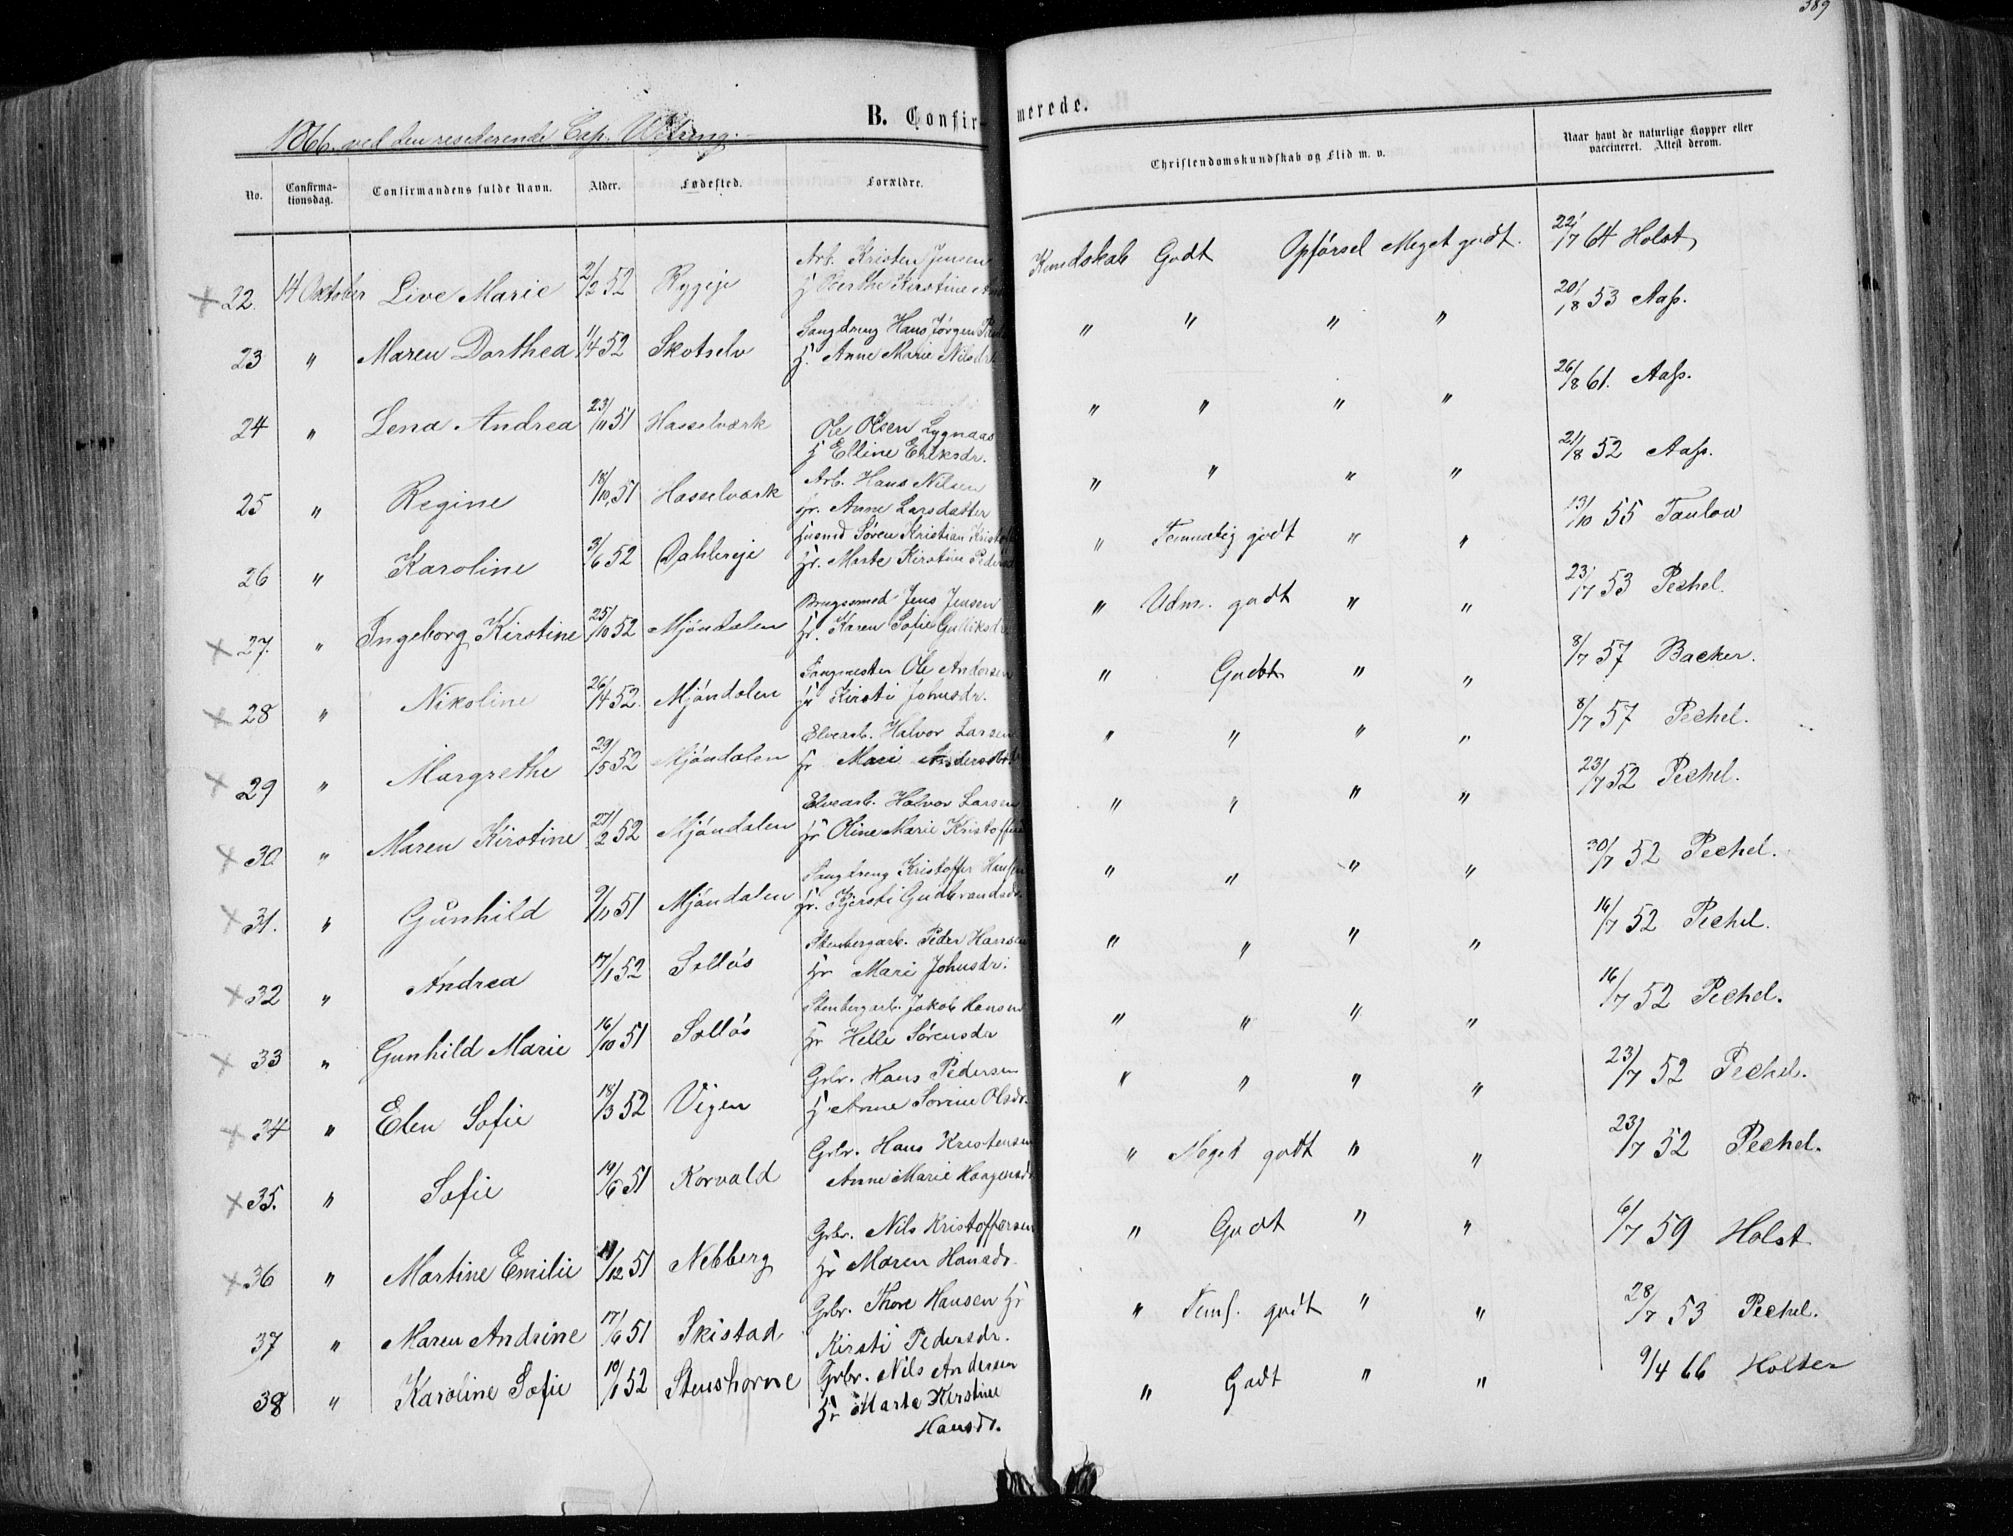 389
B. Confirmerede.
1866. ved den residerende Cap.
No. Confirmationsdag. Confirmandens fulde Navn. Alder. Fødested. Forældre. Christendomskundskab og Flid m. v. Naar havt de naturlige Kopper eller vaccineret. Attest derom.
22. 14 Oktober Live Marie 2/2 52 Ryggeje Arb. Kristen Jensen H Berthe Kirstine Kundskab Godt Opførsel Meget godt. 22/7 64 Holst
23 " Maren Dorthea 11/4 52 Skotselv Saugdreng Hans Jørgen H. Anne Marie Nilsdr. " " " " 20/8 53 Aass.
24 " Lena Andrea 23/11 51 Hasselværk Ole Olsen Lygnaas H Elline Eriksdr. " " " " 26/8 61. Aass.
25 " Regine 18/10 51 Hasselværk Arb. Hans Nilsen Hr. Anne Larsdatter " " " " 21/8 52 Aass.
26 " Karoline 3/6 52 Dahlereje Husmd Søren Kristian Hr. Marte Kirstine " Temmelig godt " " 13/10 55 Taulow
27. " Ingeborg Kirstine 25/10 52 Mjøndalen Brugssmed Jens Jensen Hr. Karen Sofie Gulliksdr " Udm. godt " " 23/7 53 Pechel.
28 " Nikoline 26/4 52. Mjøndalen Saugmester Ole Andersen Hr Kirsti Johnsdr. " Godt " " 8/7 57 Backer.
29 " Margrethe 29/5 52 Mjøndalen Elvearb. Halvor Larsen Hr Mari Andersdtr " " " " 8/7 57 Pechel.
30 " Maren Kirstine 21/2 52 Mjøndalen Elvearb. Halvor Larsen Hr Oline Marie " " " " 23/7 52 Pechel.
31. " Gunhild 9/11 51 Mjøndalen Saugdreng Kristoffer Hansen Hr. Kjersti Gudbrandsdr. " " " " 30/7 52 Pechel.
32 " Andrea 17/1 52 Solløs Stenbergarb. Peder Hansen Hr Mari Johnsdr. " " " " 16/7 52 Pechel.
33 " Gunhild Marie 16/10 51 Solløs Stenbergarb. Jakob Hansen Hr Helle Sørensdr " " " " 16/7 52 Pechel.
34 " Elen Sofie 18/3 52 Vigen Grbr. Hans Pedersen H Anne Sorine Olsdr. " " " " 23/7 52 Pechel.
35. " Sofie 19/6 51 Korvald Grbr. Hans Kristensen Anne Marie Haagensdr " Meget godt " " 23/7 52 Pechel.
36 " Martine Emilie 11/12 51 Nebberg Grbr. Nils Kristoffersen Hr Maren Hansdr. " Godt " " 6/7 59 Holst
37 " Maren Andrine 17/6 51 Skistad Grbr. Thore Hansen Hr Kirsti Pedersdr. " Teml. godt " " 28/7 53 Pechel.
38 " Karoline Sofie 10/1 52 Stenshorne Grbr. Nils Andersen Hr Marte Kirstine Hansdr. " Godt " " 9/4 66 Holter